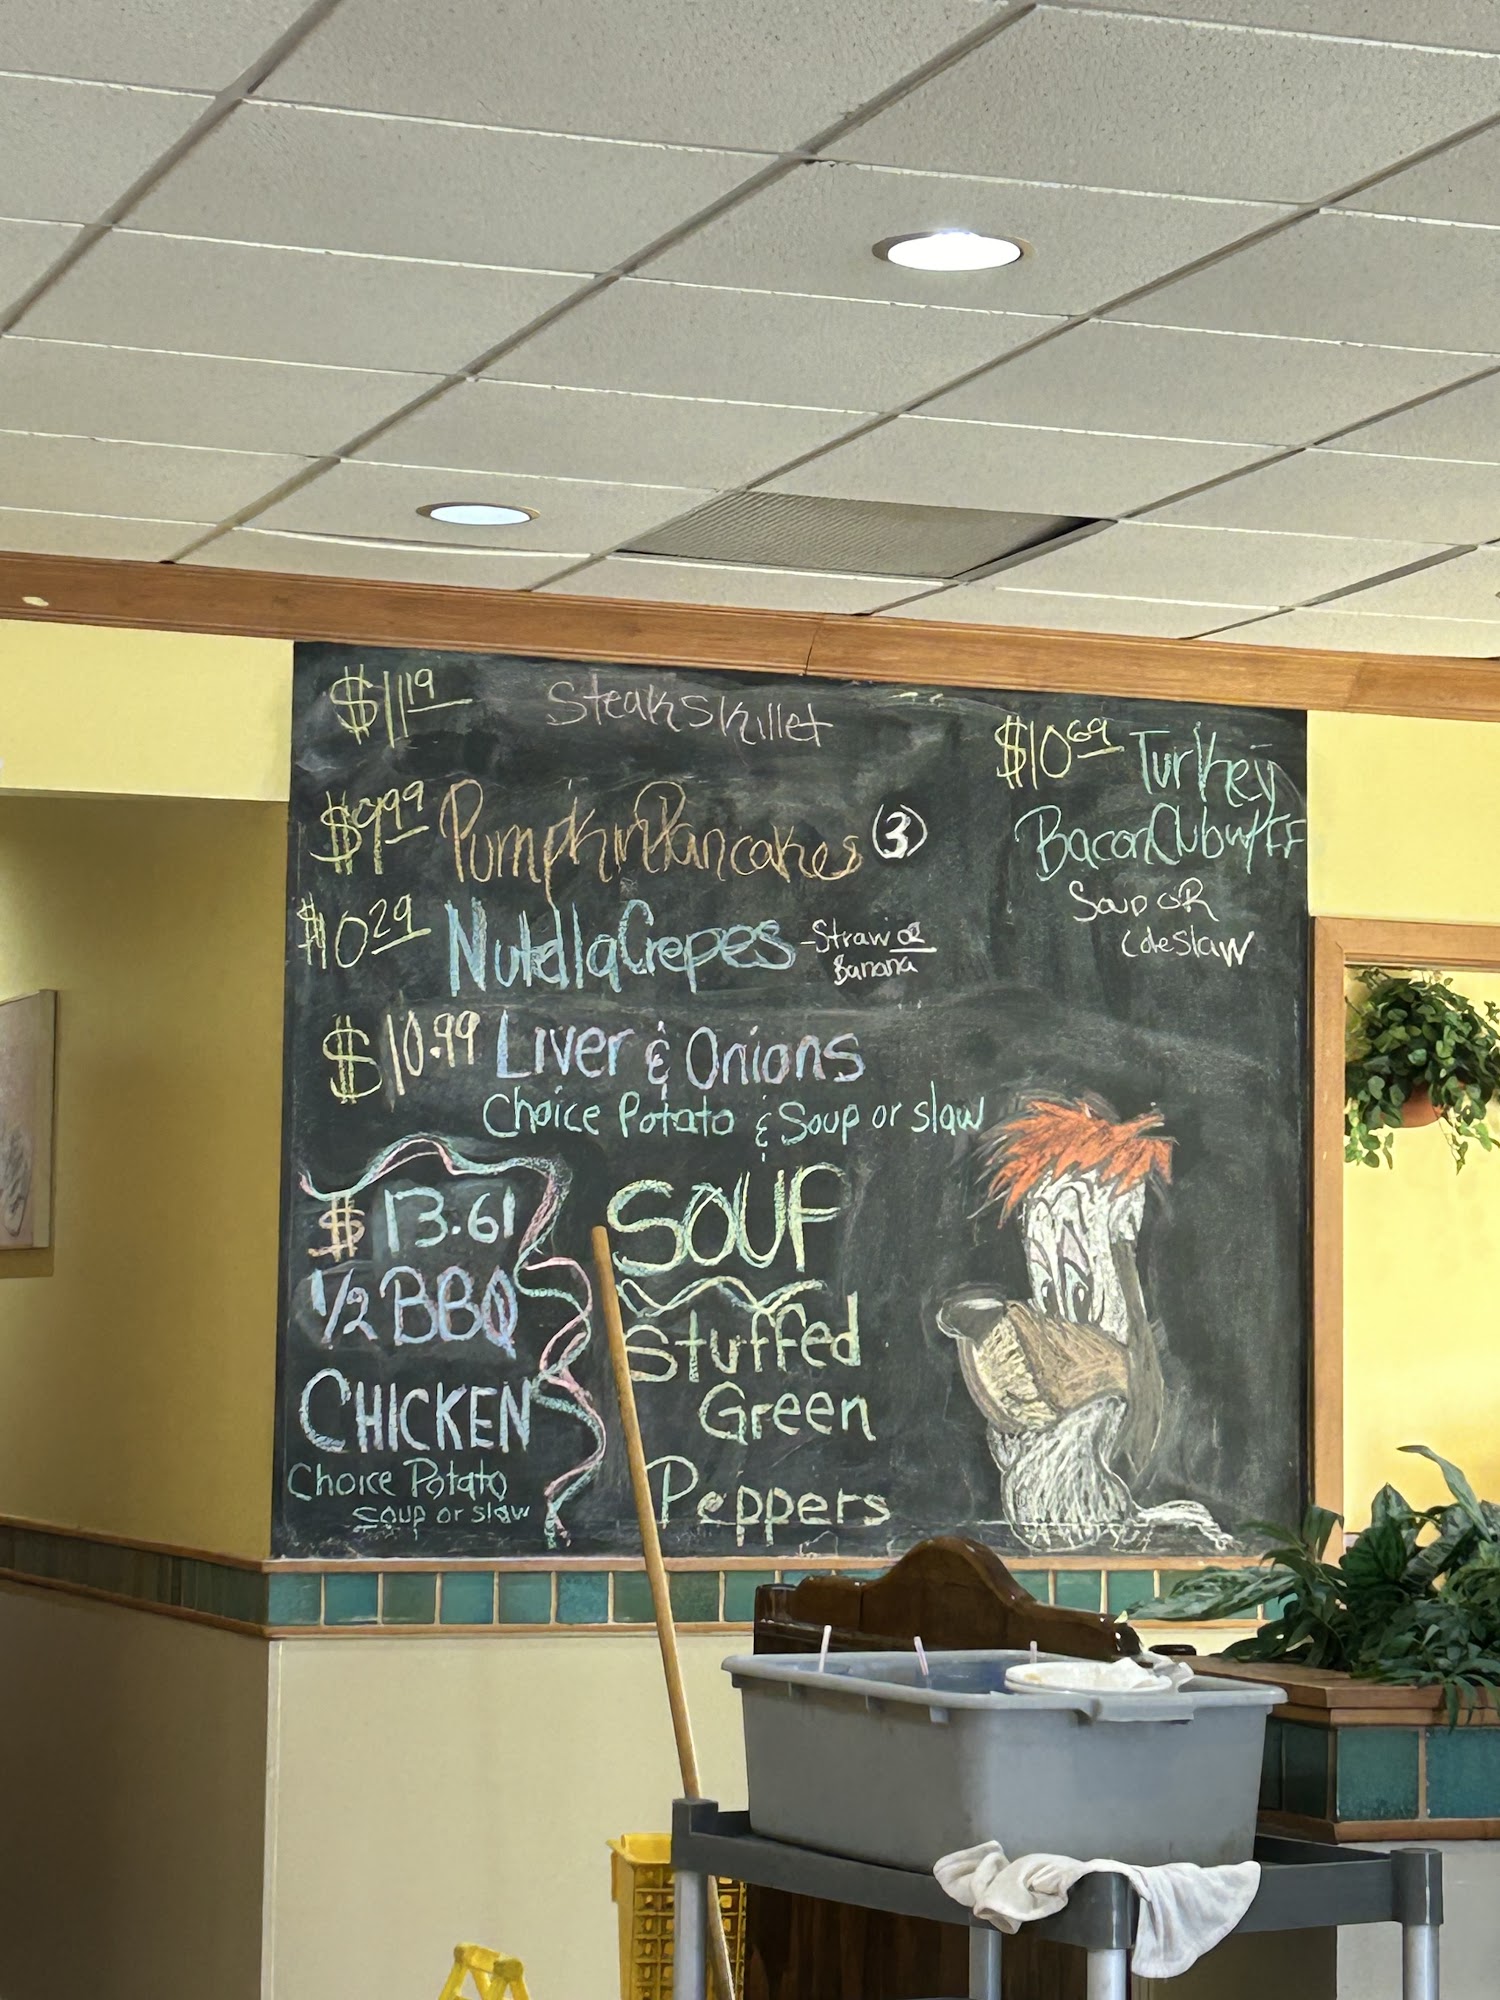 $11 19 Steak Skillet
$9 99 Pumpkin Pancakes (3)
$10 29 Nutella Crepes - Straw or
Banana
$10.99 Liver & Onions
Choice Potato & Soup or slaw
$10 69 Turkey
Bacon Club w/ FF
Soup OR
Cole Slaw
$13.61
1/2 BBQ
CHICKEN
Choice Potato
soup or slaw
SOUP
Stuffed
Green
Peppers